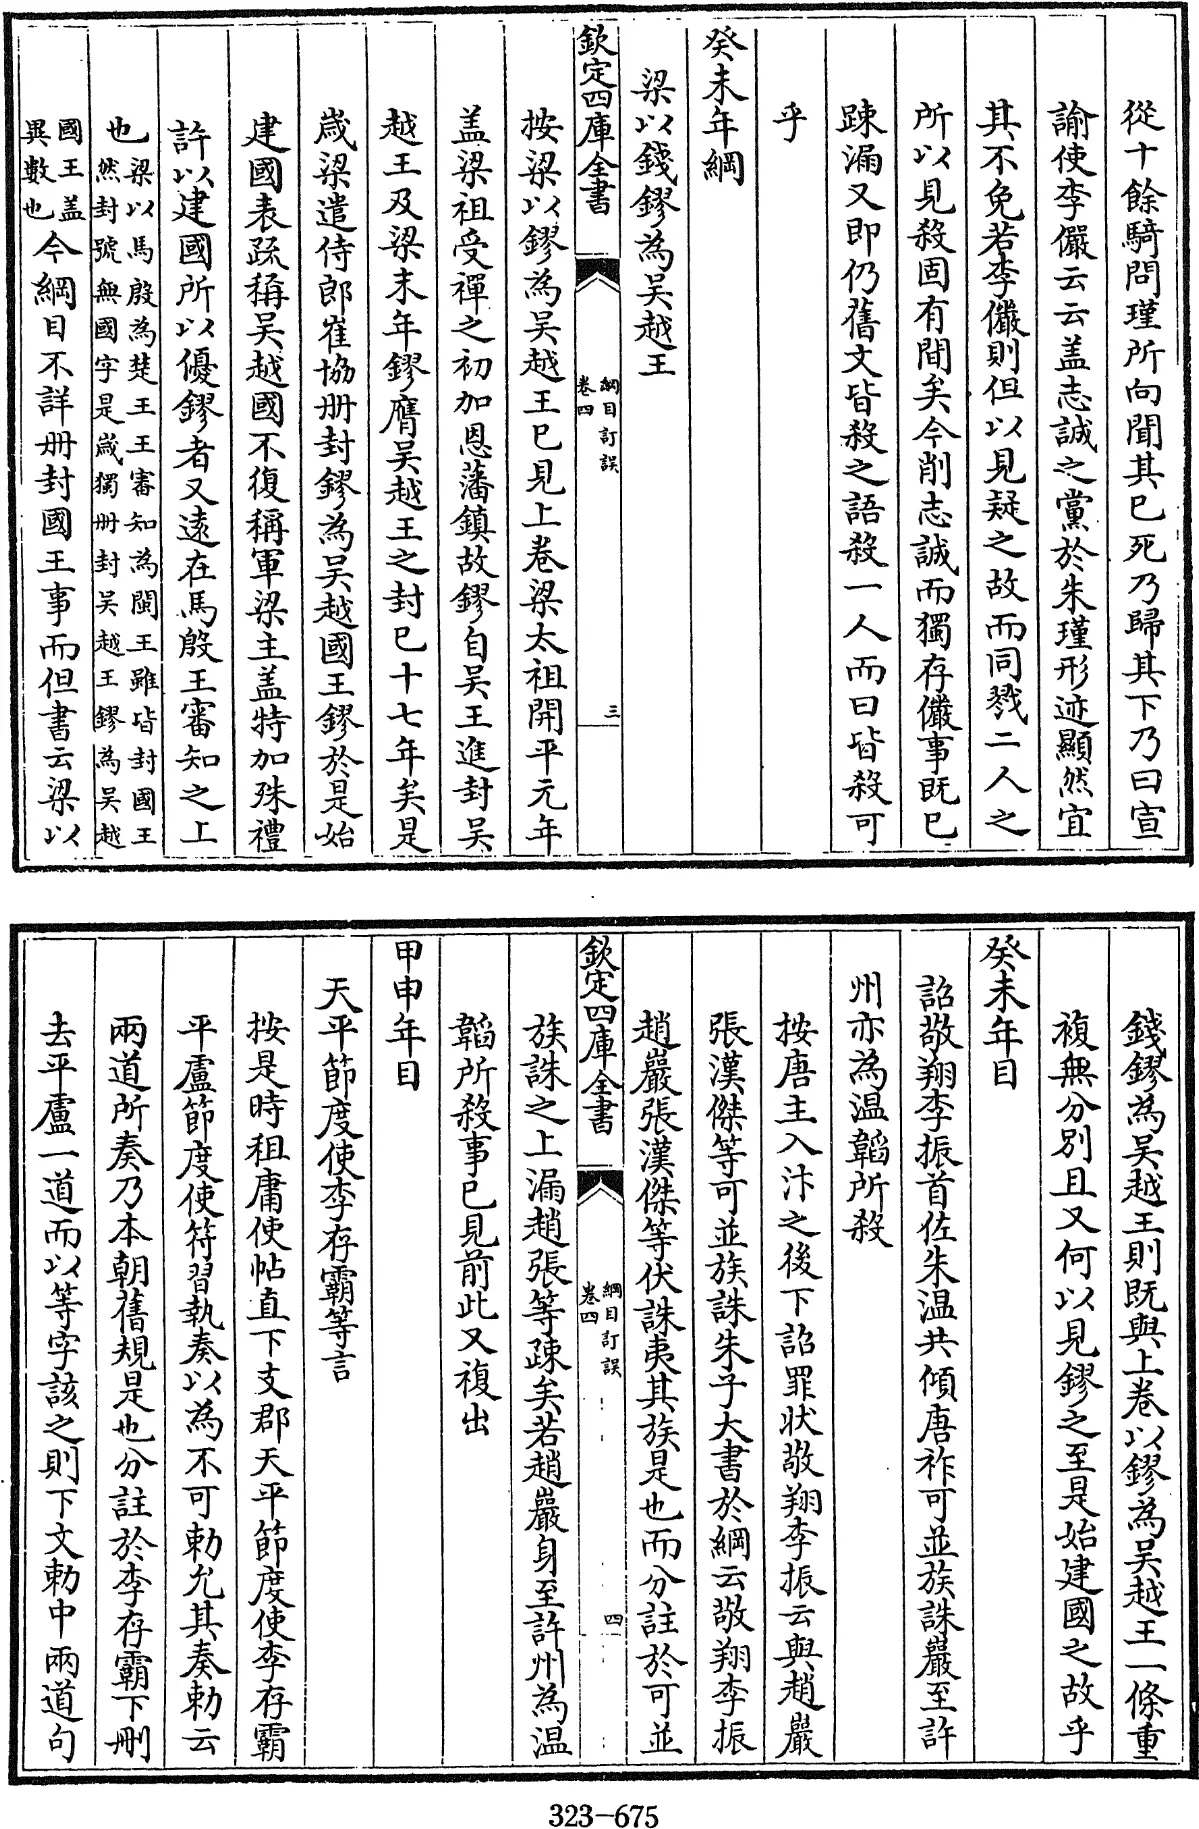 從十餘騎問瑾所向聞其已死乃歸其下乃曰宣
諭使李儼云云盖志誠之黨於朱瑾形迹顯然宜
其不免若李儼則但以見疑之故而同戮二人之
所以見殺固有間矣今削志誠而獨存儼事既已
踈漏又即仍舊文皆殺之語殺一人而曰皆殺可
乎
癸未年綱
梁以錢鏐為吴越王
欽定四庫全書
綱目訂誤
卷四
三
按梁以鏐為吴越王已見上卷梁太祖開平元年
盖梁祖受禪之初加恩藩鎮故鏐自吴王進封吴
越王及梁末年鏐膺吴越王之封已十七年矣是
歲梁遣侍郎崔協册封鏐為吴越國王鏐於是始
建國表疏稱吴越國不復稱軍梁主盖特加殊禮
許以建國所以優鏐者又遠在馬殷王審知之上
也梁以馬殷為楚王王審知為閩王雖皆封國王
然封號無國字是歲獨册封吴越王鏐為吴越
國王盖
異數也今綱目不詳册封國王事而但書云梁以
錢鏐為吴越王則既與上卷以鏐為吴越王一條重
複無分別且又何以見鏐之至是始建國之故乎
癸未年目
詔敬翔李振首佐朱温共傾唐祚可並族誅巖至許
州亦為温韜所殺
按唐主入汴之後下詔罪狀敬翔李振云與趙巖
張漢傑等可並族誅朱子大書於綱云敬翔李振
趙巖張漢傑等伏誅夷其族是也而分註於可並
欽定四庫全書
綱目訂誤
卷四
四
族誅之上漏趙張等踈矣若趙巖身至許州為温
韜所殺事已見前此又複出
甲申年目
天平節度使李存霸等言
按是時租庸使帖直下支郡天平節度使李存霸
平盧節度使符習執奏以為不可勅允其奏勅云
兩道所奏乃本朝舊規是也分註於李存霸下刪
去平盧一道而以等字該之則下文勅中兩道句
323-675